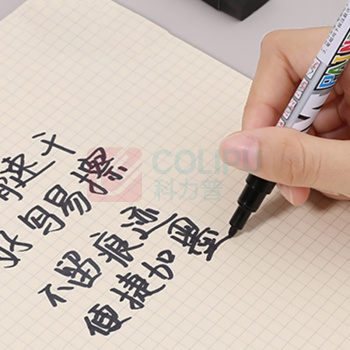 速干
好写易擦
不留痕迹
便捷加墨
COLIPU
科力普